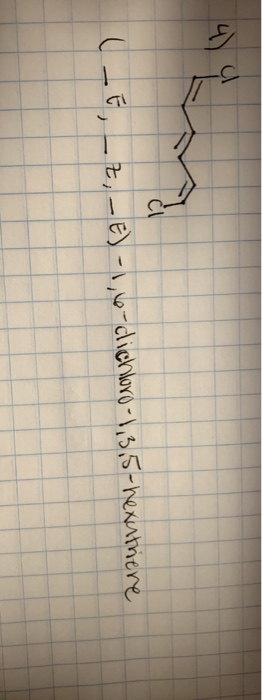 4) Cl
Cl
(_E, _Z, _E) -1,6-dichloro-1,3,5-hexatriene